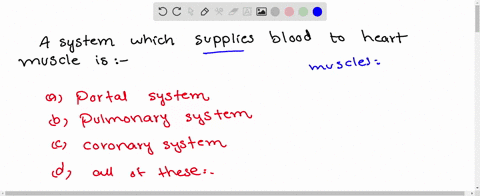 A system which supplies blood to heart
muscle is :-
muscles:
a) Portal system
b) Pulmonary system
c) coronary system
d) all of these:-